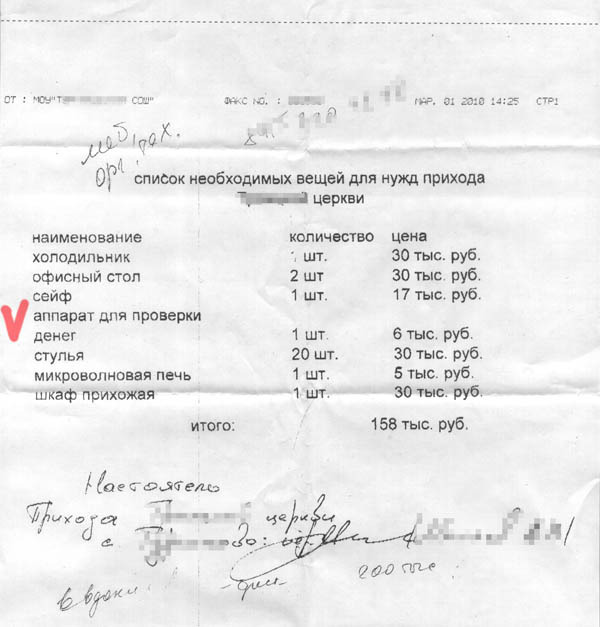 ОТ : МОУ"Т СОШ" ФАКС NO. : МАР. 01 2010 14:25 СТР1
список необходимых вещей для нужд прихода
церкви
наименование количество цена
холодильник 1 шт. 30 тыс. руб.
офисный стол 2 шт 30 тыс. руб.
сейф 1 шт. 17 тыс. руб.
аппарат для проверки
денег 1 шт. 6 тыс. руб.
стулья 20 шт. 30 тыс. руб.
микроволновая печь 1 шт. 5 тыс. руб.
шкаф прихожая 1 шт. 30 тыс. руб.
итого: 158 тыс. руб.
Настоятель
Прихода церкви
с.
200 тыс.